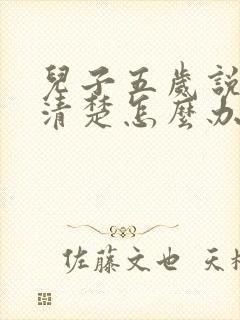 兒子五歲說
清楚怎麼办
佐藤文也 天村